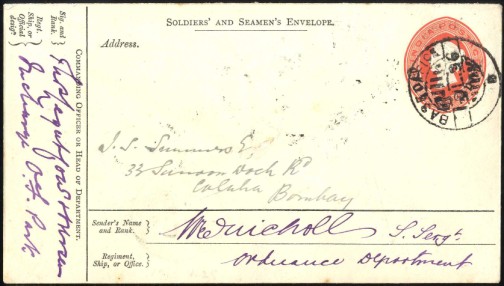 SOLDIERS' AND SEAMEN'S ENVELOPE.
Address.
J. S. Summers Esq
33 Sassoon Dock Rd
Colaba
Bombay
Sender's Name
and Rank.
McNicholl S. Sergt.
Regiment,
Ship, or Office.
Ordnance Department
COMMANDING OFFICER OR HEAD OF DEPARTMENT.
Sig. and
Rank.
Regt.
Ship, or
Official
desigtn
In charge O. F. Park
INDIA POSTAGE